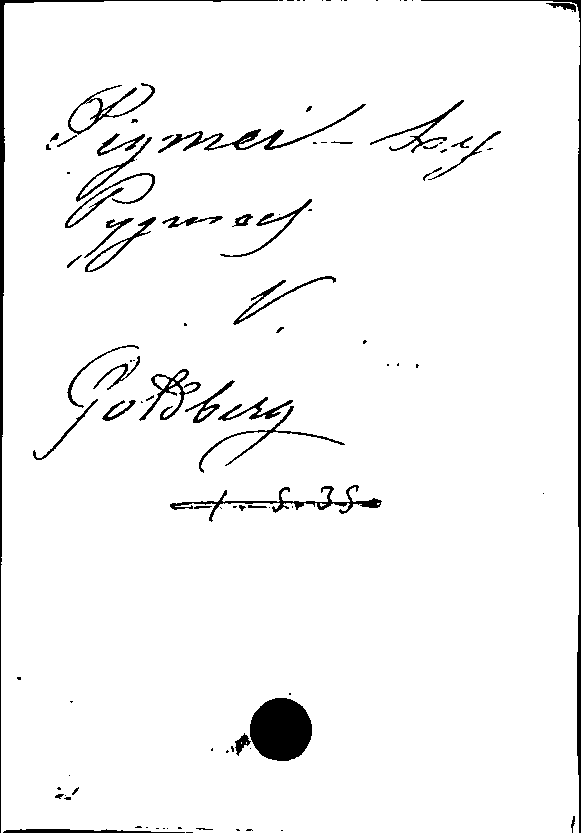 Pigmei
Pygmaei
V.
Goldberg
1.5.35